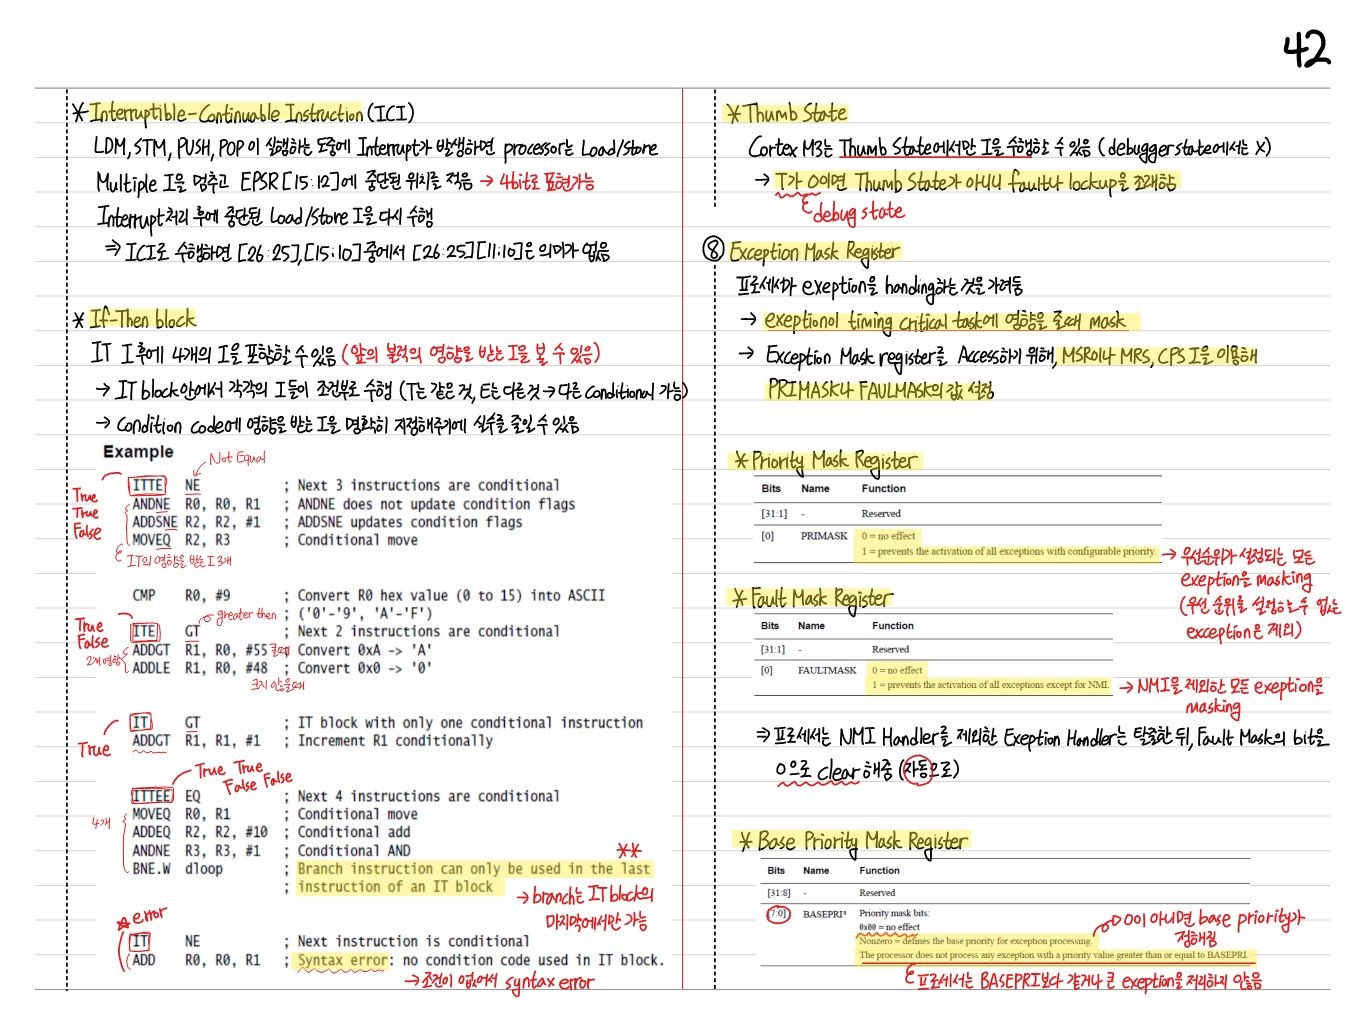 42
* Interruptible-Continuable Instruction (ICI)
LDM, STM, PUSH, POP이 실행하는 도중에 Interrupt가 발생하면 processor는 Load/Store
Multiple I을 멈추고 EPSR[15:12]에 중단된 위치를 적음 → 4bit로 표현가능
Interrupt처리 후에 중단된 Load/Store I을 다시 수행
⇒ ICI로 수행하면 [26:25],[15:10]중에서 [26:25][11:10]은 의미가 없음
* If-Then block
IT I 후에 4개의 I을 포함할 수 있음 (앞의 블럭의 영향을 받는 I을 볼 수 있음)
→ IT block안에서 각각의 I들이 조건부로 수행 (T는 같은 것, E는 다른것 → 다른 conditional 가능)
→ Condition code에 영향을 받는 I을 명확히 지정해주기에 실수를 줄일 수 있음
Example
Not Equal
ITTE NE ; Next 3 instructions are conditional
ANDNE R0, R0, R1 ; ANDNE does not update condition flags
ADDSNE R2, R2, #1 ; ADDSNE updates condition flags
MOVEQ R2, R3 ; Conditional move
True
True
False
IT의 영향을 받는 I 3개
CMP R0, #9 ; Convert R0 hex value (0 to 15) into ASCII
greater then ; ('0'-'9', 'A'-'F')
ITE GT ; Next 2 instructions are conditional
ADDGT R1, R0, #55 클때 ; Convert 0xA -> 'A'
ADDLE R1, R0, #48 ; Convert 0x0 -> '0'
True
False
2개 영향
크지 않을때
IT GT ; IT block with only one conditional instruction
ADDGT R1, R1, #1 ; Increment R1 conditionally
True
True True
False False
ITTEE EQ ; Next 4 instructions are conditional
MOVEQ R0, R1 ; Conditional move
ADDEQ R2, R2, #10 ; Conditional add
ANDNE R3, R3, #1 ; Conditional AND
BNE.W dloop ; Branch instruction can only be used in the last
; instruction of an IT block
4개
**
→ branch는 IT block의
마지막에서만 가능
☆ error
IT NE ; Next instruction is conditional
ADD R0, R0, R1 ; Syntax error: no condition code used in IT block.
→ 조건이 없어서 syntax error
* Thumb State
Cortex M3는 Thumb State에서만 I을 수행할 수 있음 (debugger state에서는 X)
→ T가 0이면 Thumb State가 아니니 fault나 lockup을 초래함
debug state
⑧ Exception Mask Register
프로세서가 exeption을 handing하는 것을 가려둠
→ exeptionol timing critical task에 영향을 줄때 mask
→ Exception Mask register를 Access하기 위해, MSR이나 MRS, CPS I을 이용해
PRIMASK나 FAULMASK의 값 설정
* Priority Mask Register
Bits Name Function
[31:1] - Reserved
[0] PRIMASK 0 = no effect
1 = prevents the activation of all exceptions with configurable priority.
→ 우선순위가 설정되는 모든
exeption을 masking
(우선 순위를 설정하는수 없는
exception은 제외)
* Fault Mask Register
Bits Name Function
[31:1] - Reserved
[0] FAULTMASK 0 = no effect
1 = prevents the activation of all exceptions except for NMI.
→ NMI을 제외한 모든 exeption을
masking
⇒ 프로세서는 NMI Handler를 제외한 Exeption Handler는 탈출한 뒤, Fault Mask의 bit을
0으로 clear해줌 (자동으로)
* Base Priority Mask Register
Bits Name Function
[31:8] - Reserved
[7:0] BASEPRIª Priority mask bits:
0x00 = no effect
Nonzero = defines the base priority for exception processing.
The processor does not process any exception with a priority value greater than or equal to BASEPRI.
0이 아니면 base priority가
정해짐
프로세서는 BASEPRI보다 같거나 큰 exeption을 처리하지 않음